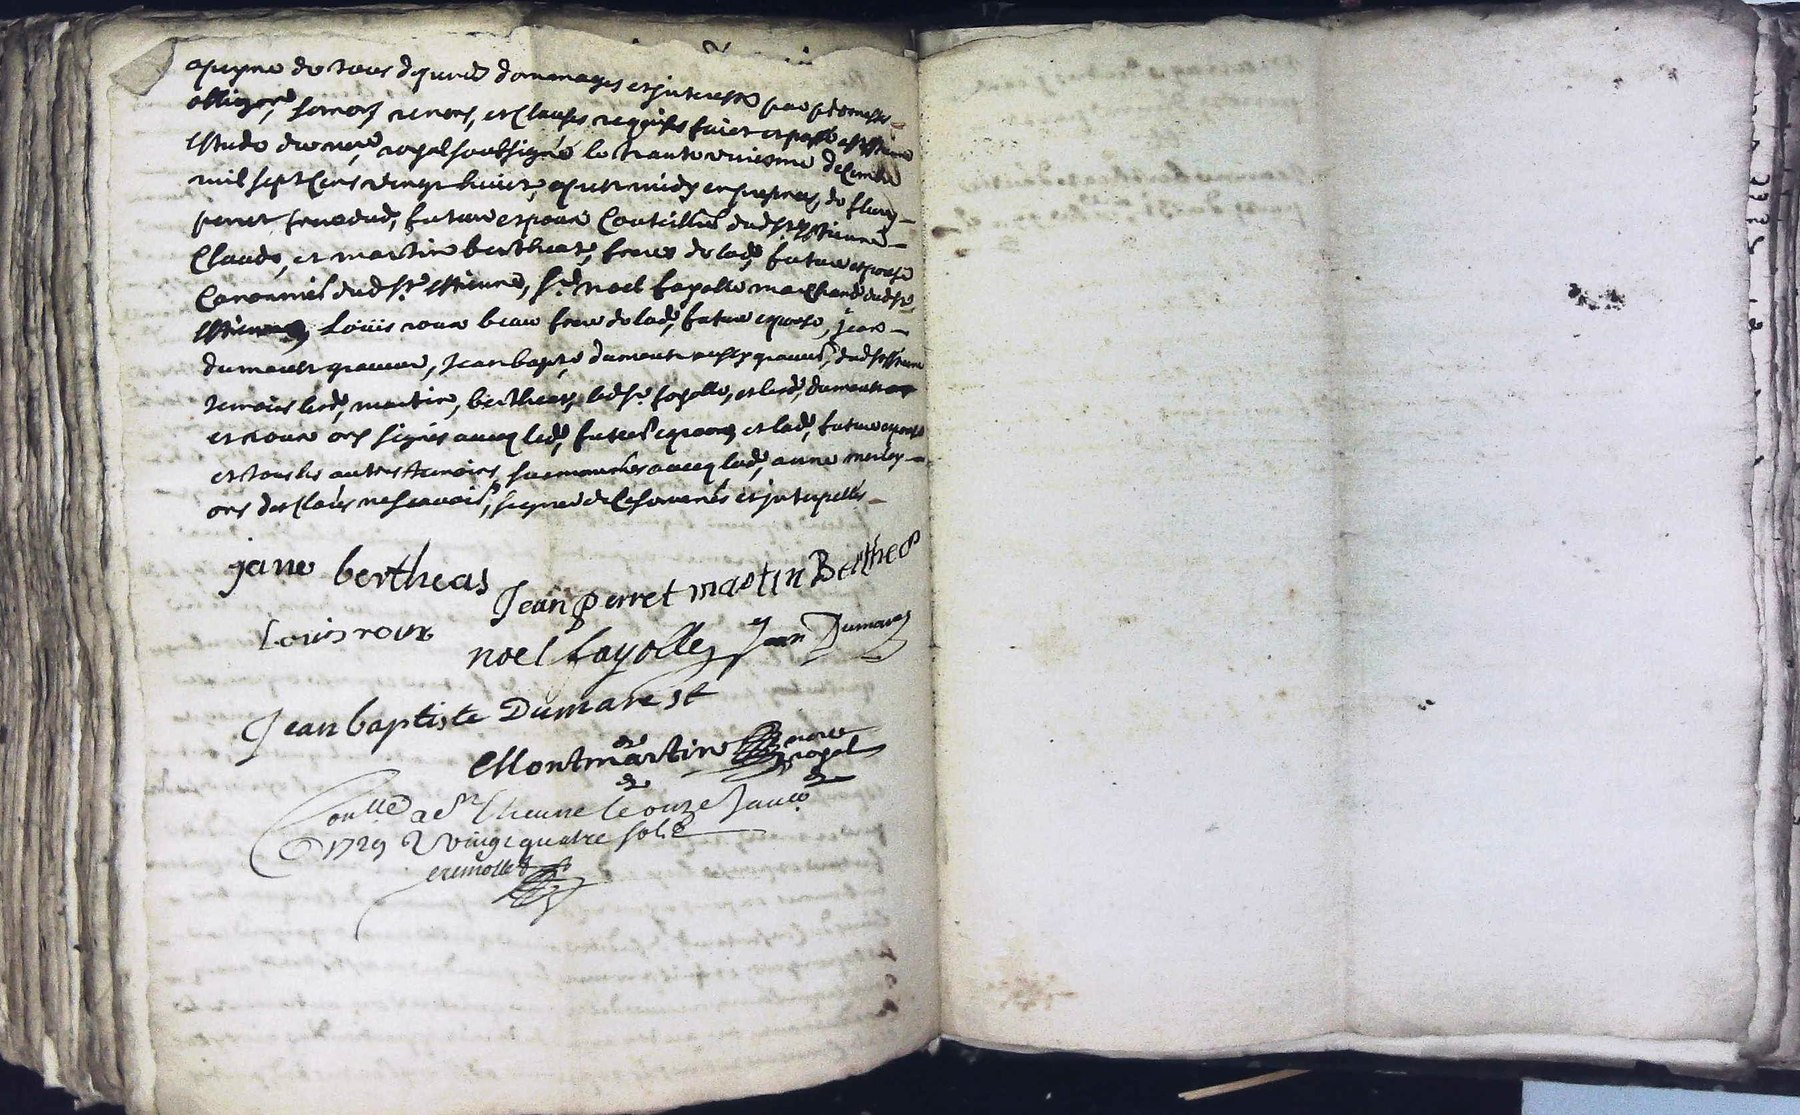 apeyne de tous depens dommages et interest par promesse
obligõns, soumõns renons, et clauses requises fait et passé a st estienne
estude du nore royal soubsigné le trante uniesme decembre
mil sept cens vingt huict, apres midy en presence de fleury
perret frere dud, futur espoux coutellier dud st estienne
Claude, et martin bertheas, freres de lad, future espouse
Canonnier dud st estienne, sr noel fayolle marchand dud st
estienne Louis roux beau frere de lad, future espouse, jean
dumarest graveur, Jean bapte, dumarest aussy graveur, dud st estienne
temoins lesd, martin, bertheas, led sr fayolle, et lesd, dumarest
et roux ont signés avecq led, futur espoux et lad, future espouse
et tous les autres temoins, susnommés avecq lad, anne merley
ont declarés ne scavoir, signer de ce sommés et interpellés
jane bertheas
Jean perret martin Bertheas
Louis roux
noel fayolle Jean Dumarest
Jean baptiste Dumarest
Montmartin nore royal
Conllé a st Etienne le onze Janv
1729 R vingt quatre sols